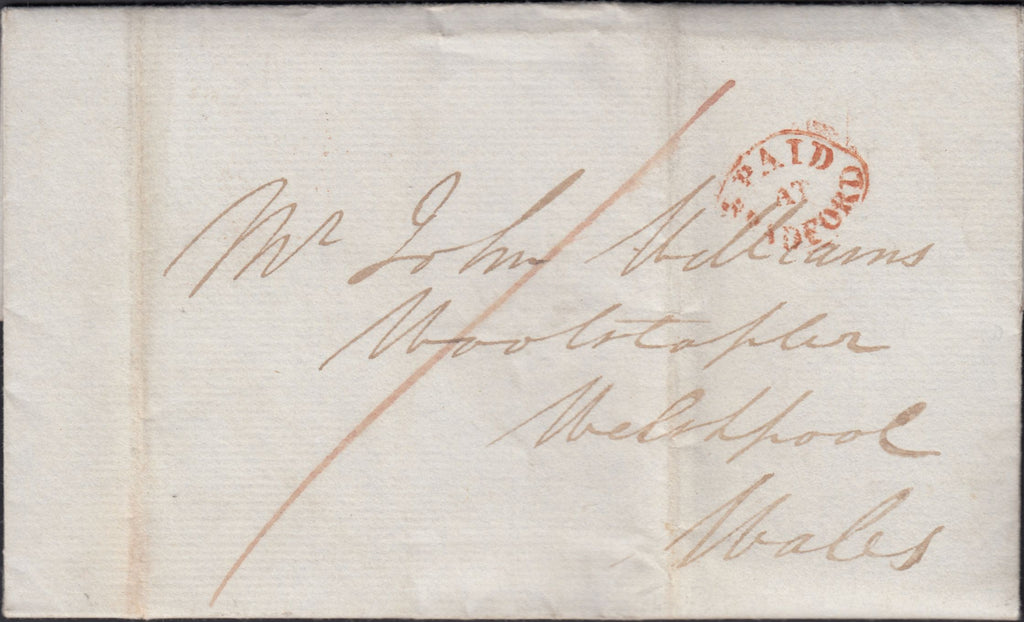 PAID
AT
BRADFORD
Mr John Williams
Woolstapler
Welshpool
Wales